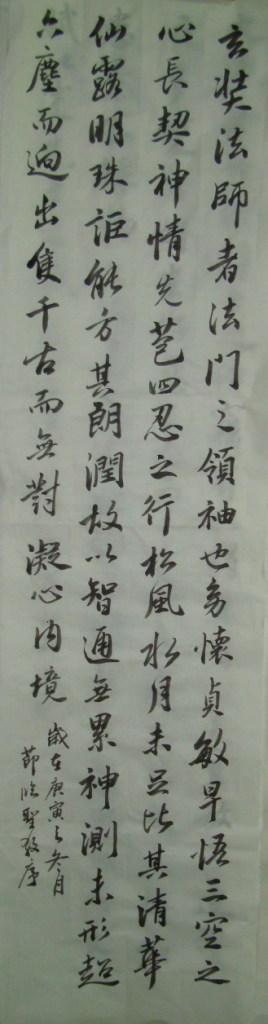 玄奘法師者法門之領袖也幼懷貞敏早悟三空之
心長契神情先苞四忍之行松風水月未足比其清華
仙露明珠詎能方其朗潤故以智通無累神測未形超
六塵而迥出隻千古而無對凝心內境
歲在庚寅之冬月
節臨聖教序